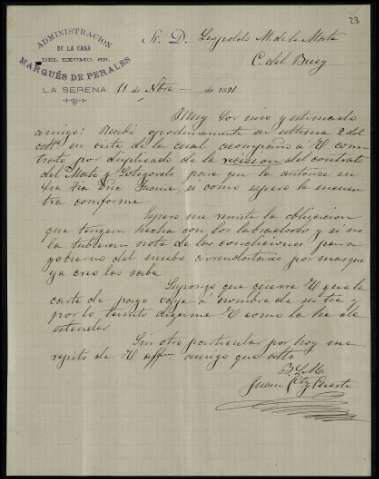 23
ADMINISTRACION
DE LA CASA
DEL EXCMO. SR.
MARQUÉS DE PERALES
LA SERENA
Sr. D. Leopoldo M. de la Mata
C. del Buey
11 de Nbre de 1891
Muy Sor mio y estimado
amigo: Recibi oportunamente su extensa 2 del
en vista de la cual acompaño a V con-
trato por duplicado de la del contrato
del Mato y para que la autorice en
si como espero la encuen
tra conforme
Espero me remita la obligacion
que tengan hecha con los labradores y si no
la tubieran nota de las condiciones para
gobierno del nuebo por mas que
ya creo las sabe
Supongo que querra V que la
carta de pago vaya a nombre de su tia y
por lo tanto digame V como la he de
estender
Sin otro particular por hoy me
repito de V affmo amigo que
B. S. M.
Juan